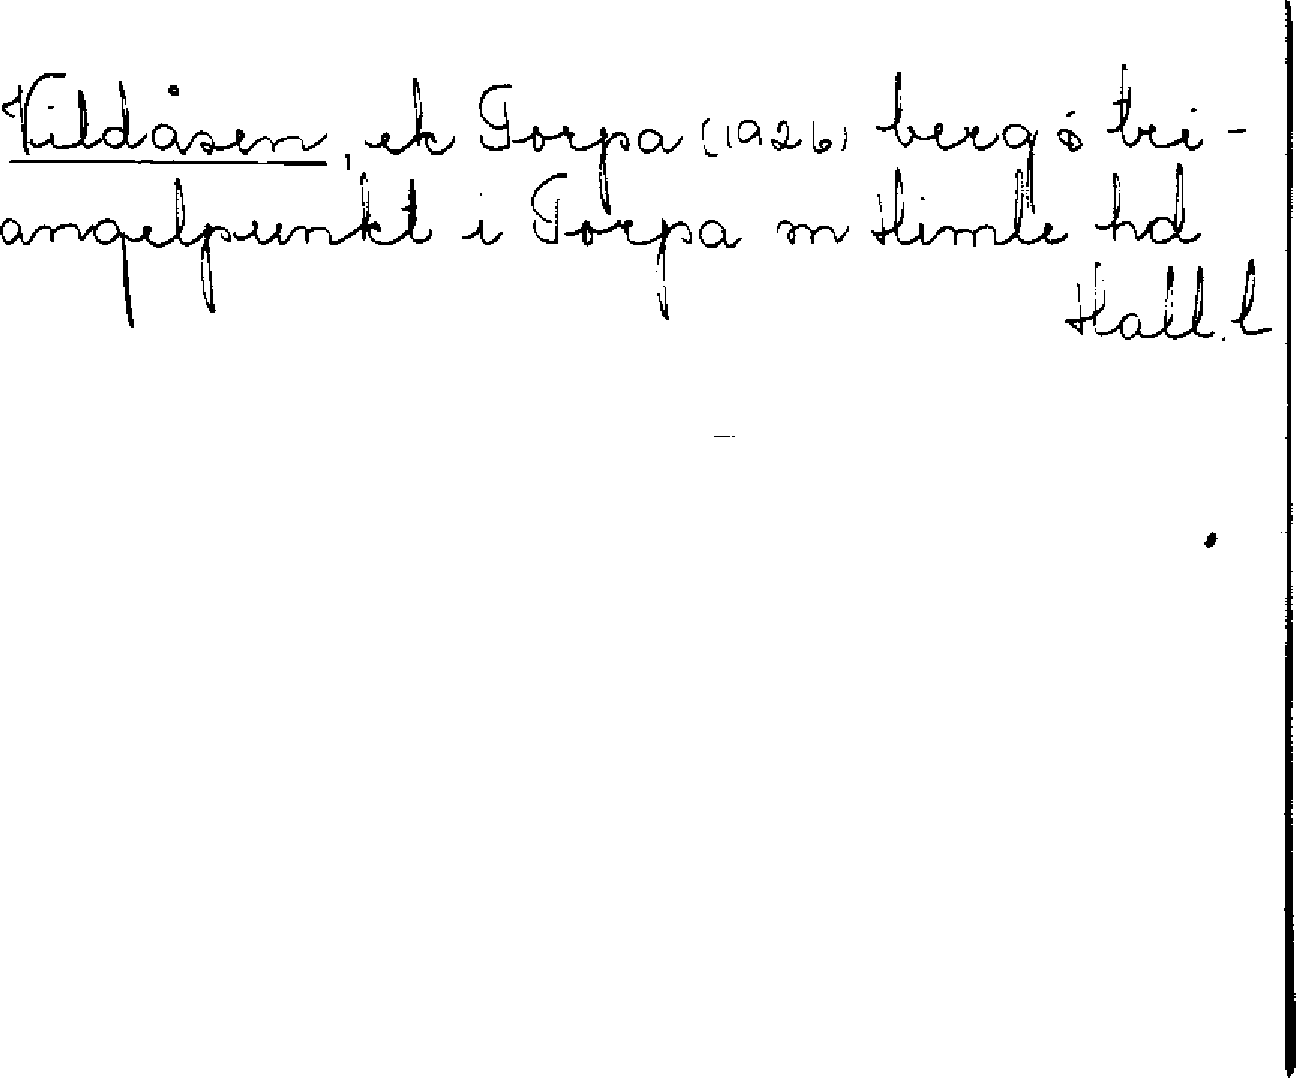 Vildåsen, ek Torpa (1926) berg ó tri-
angelpunkt i Torpa sn Himle hd
Hall. l